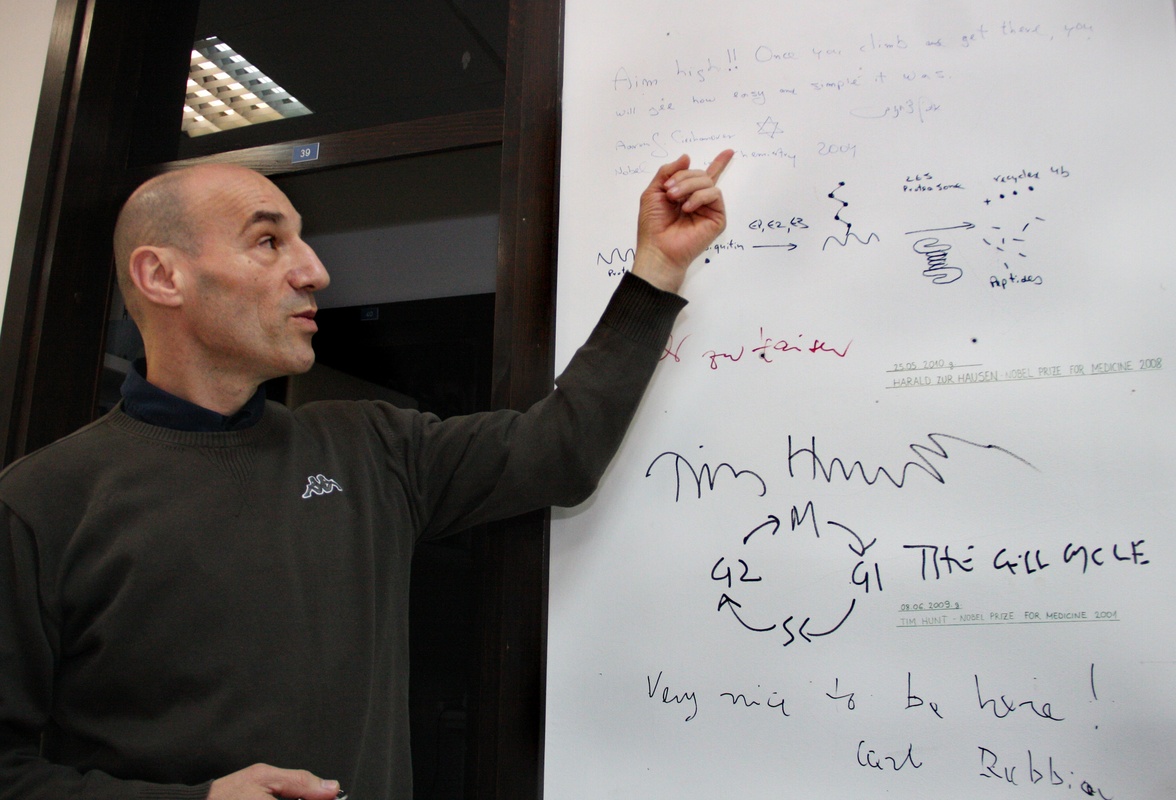 39
Aim high!! Once you climb and get there, you
will see how easy and simple it was.
Ciechanover
Nobel in chemistry 2004
E1, E2, E3
26S
Proteasome
recycled Ub
+
Peptides
zur Hausen
25.05.2010 g
HARALD ZUR HAUSEN - NOBEL PRIZE FOR MEDICINE 2008
Tim Hunt
M
G2
G1
S
THE CELL CYCLE
08.06.2009 g
TIM HUNT - NOBEL PRIZE FOR MEDICINE 2001
Very nice to be here!